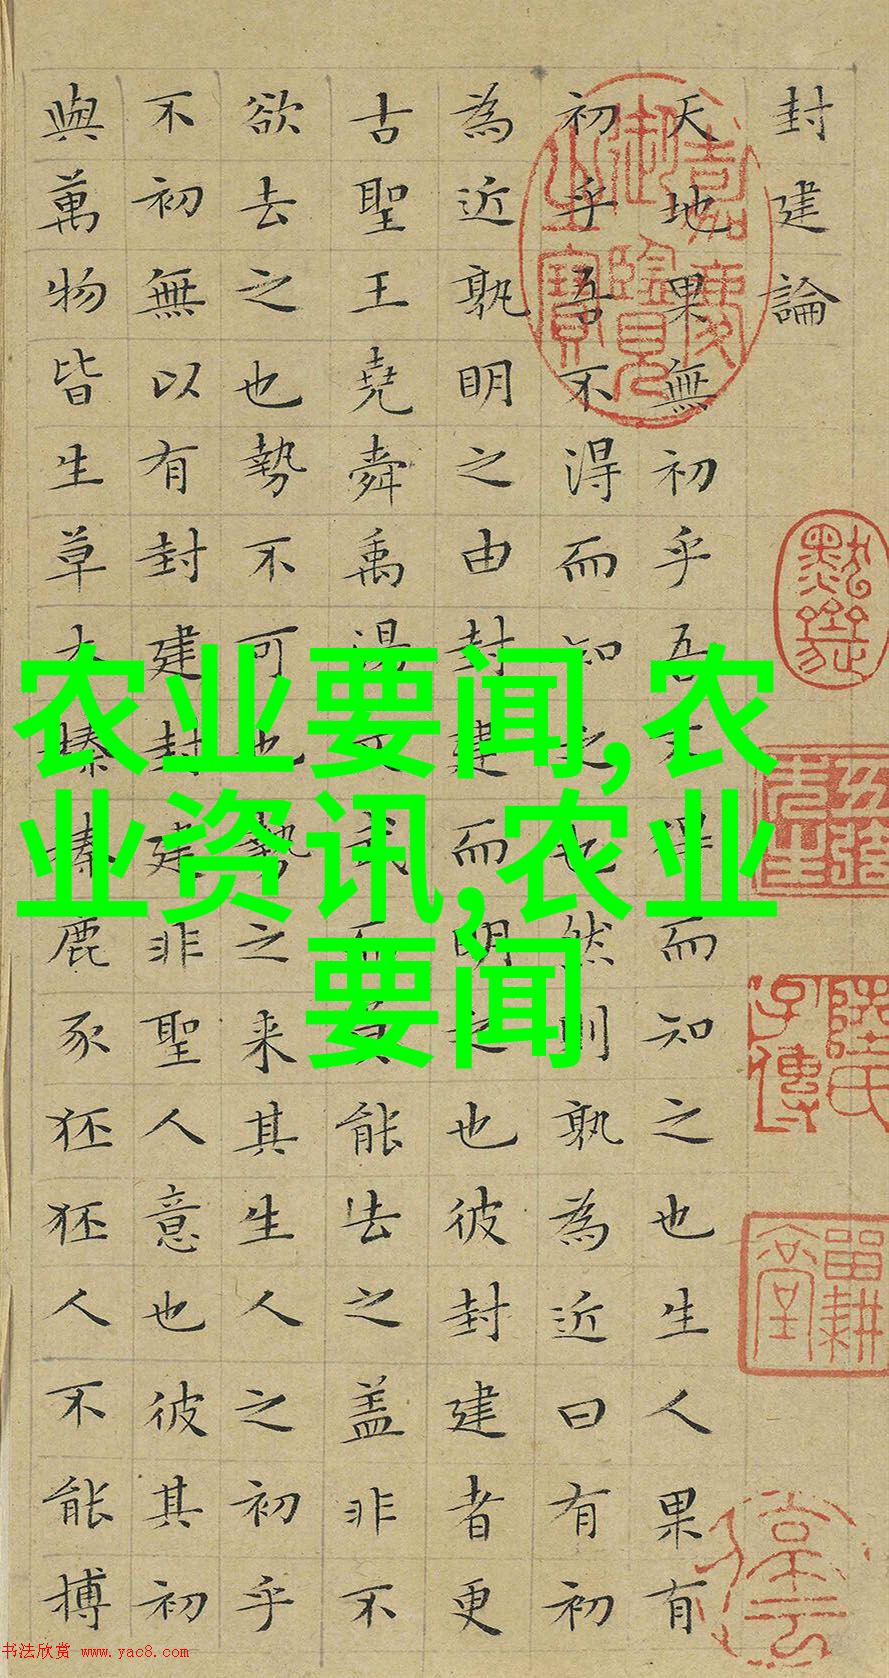 封建論
天地果無初乎吾不得而知之也生人果有
初乎吾不得而知之也然則孰為近曰有初
為近孰明之由封建而明之也彼封建者更
古聖王堯舜禹湯文武而莫能去之盖非不
欲去之也勢不可也勢之来其生人之初乎
不初無以有封建封建非聖人意也彼其初
與萬物皆生草木榛榛鹿豕狉狉人不能搏
嘉慶御覽之寶
陸氏子傳
畱耕堂
农业要闻,农
业资讯,农业
要闻
书法欣赏 www.yac8.com